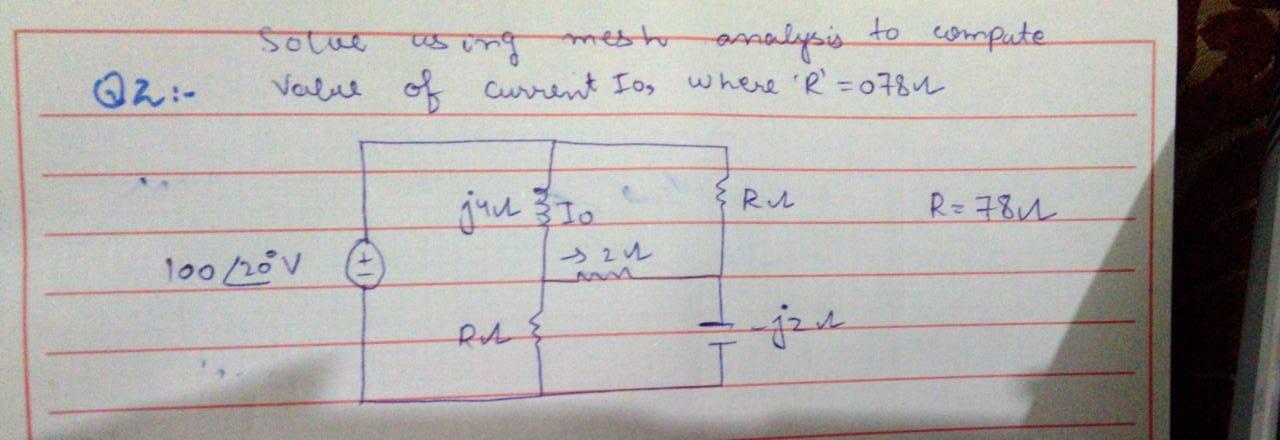 Solve using mesh analysis to compute
Q2:- Value of current Io, where 'R' = 078Ω
j4Ω Io RΩ R = 78Ω
→ 2Ω
100/20° V + -
RΩ -j2Ω